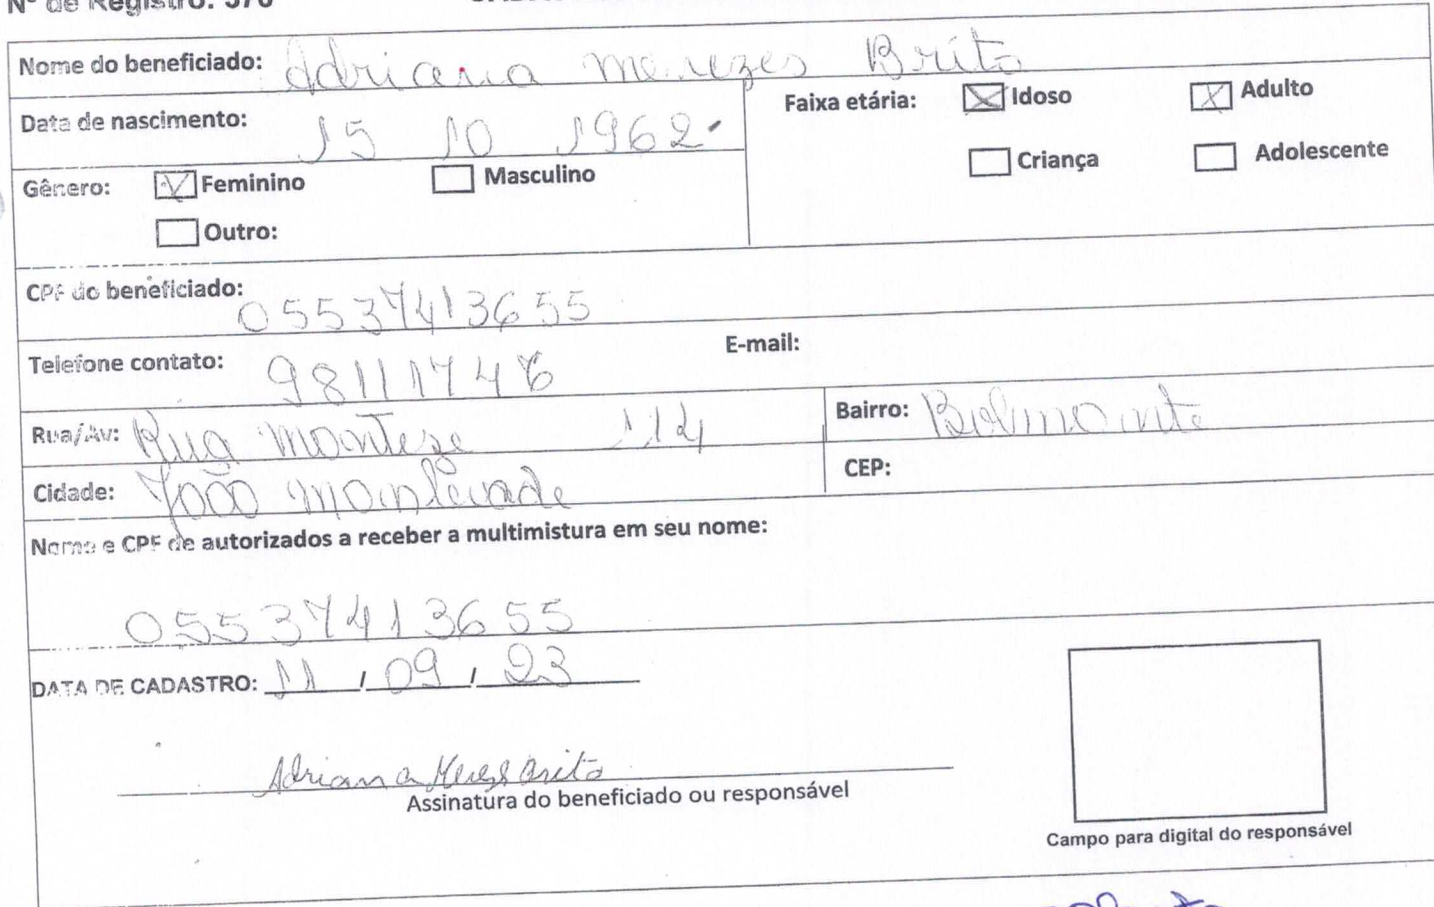 Nº de Registro: 370
Nome do beneficiado: Adriana Menezes Brito
Data de nascimento: 15 10 1962
Faixa etária: Idoso Adulto
Criança Adolescente
Gênero: Feminino Masculino
Outro:
CPF do beneficiado: 05537413655
Telefone contato: 98111746
E-mail:
Rua/Av: Rua Monteze 114
Bairro: Belmonte
Cidade: João Monlevade
CEP:
Nome e CPF de autorizados a receber a multimistura em seu nome:
05537413655
DATA DE CADASTRO: 11 / 09 / 23
Adriana Brito
Assinatura do beneficiado ou responsável
Campo para digital do responsável